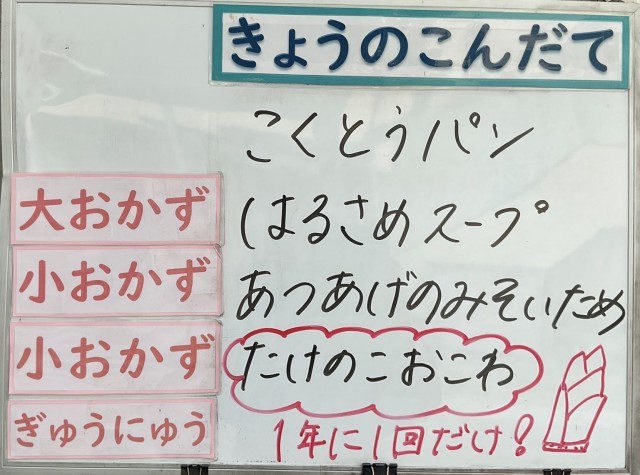 きょうのこんだて
こくとうパン
大おかず はるさめスープ
小おかず あつあげのみそいため
小おかず たけのこおこわ
ぎゅうにゅう 1年に1回だけ!